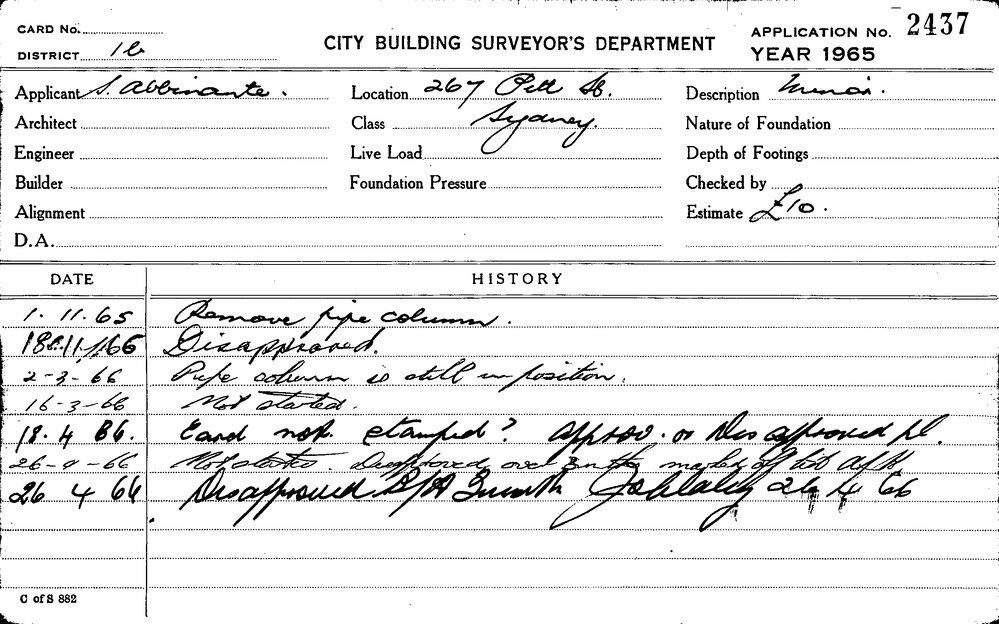 CARD No.
DISTRICT 1b
CITY BUILDING SURVEYOR'S DEPARTMENT
APPLICATION No. 2437
YEAR 1965
Applicant S. Abbinante. Location 267 Pitt St. Description Minor.
Architect Class Sydney. Nature of Foundation
Engineer Live Load Depth of Footings
Builder Foundation Pressure Checked by
Alignment Estimate £10.
D.A.
DATE HISTORY
1. 11. 65 Remove pipe column.
18.11.65 Disapproved.
2-3-66 Pipe column is still in position.
16-3-66 Not started.
18. 4 66. Card not stamped? approv. or Disapproved pl.
26- -66 Not started. Disapproved over
26 4 66 Disapproved 26 4 66
C of S 882